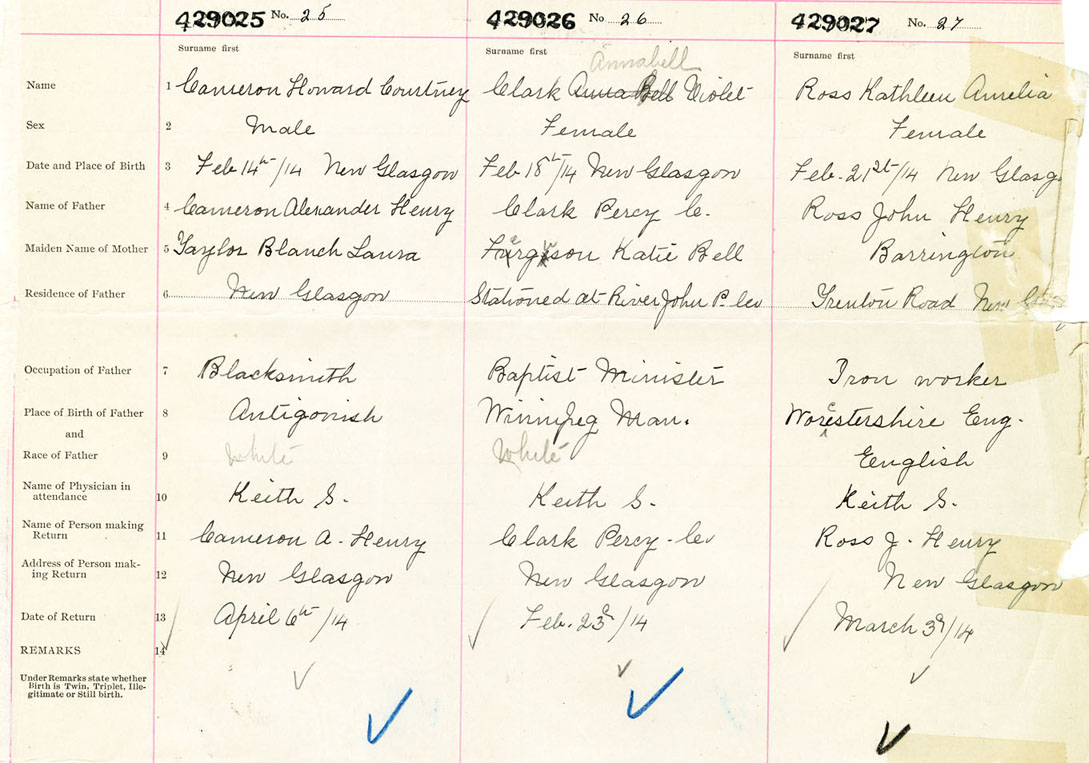 429025 No. 25 429026 No 26 429027 No. 27
Surname first Surname first Surname first
Annabell
Name 1 Cameron Howard Courtney Clark Anna Bell Violet Ross Kathleen Amelia
Sex 2 Male Female Female
Date and Place of Birth 3 Feb 14th/14 New Glasgow Feb 18th/14 New Glasgow Feb. 21st/14 New Glasg
Name of Father 4 Cameron Alexander Henry Clark Percy C. Ross John Henry
Maiden Name of Mother 5 Taylor Blanch Laura Ferguson Katie Bell Barrington
Residence of Father 6 New Glasgow Stationed at River John P. Co Trenton Road New
Occupation of Father 7 Blacksmith Baptist Minister Iron worker
Place of Birth of Father 8 Antigonish Winnipeg Man. Worcestershire Eng.
and
Race of Father 9 White White Eenglish
Name of Physician in
attendance 10 Keith S. Keith S. Keith S.
Name of Person making
Return 11 Cameron A. Henry Clark Percy. Ross J. Henry
Address of Person mak-
ing Return 12 New Glasgow New Glasgow New Glasgow
Date of Return 13 April 6th/14 Feb. 23d/14 March 3d/14
REMARKS 14
Under Remarks state whether
Birth is Twin, Triplet, Ille-
gitimate or Still birth.